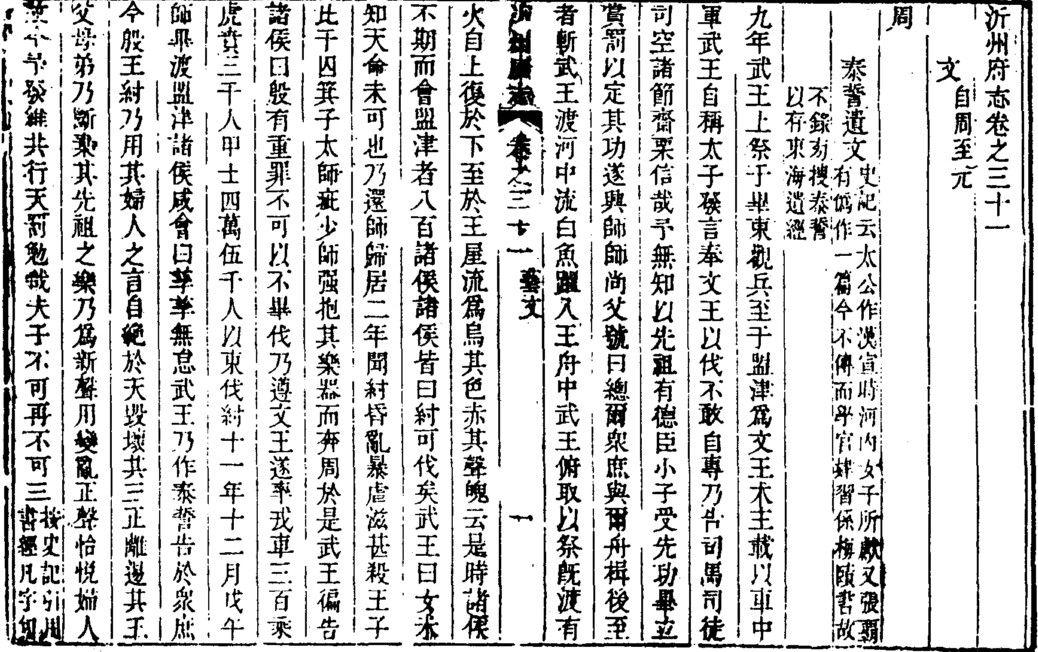 沂州府志卷之三十一
文自周至元
周
泰誓遺文史記云太公作漢宣時河內女子所獻又張霸
有僞作一篇今不傳而學官肄習係梅賾書故
不錄刻搜泰誓
以存東海遺經
九年武王上祭于畢東觀兵至于盟津爲文王木主載以車中
軍武王自稱太子發言奉文王以伐不敢自專乃告司馬司徒
司空諸節齋栗信哉予無知以先祖有德臣小子受先功畢立
賞罰以定其功遂興師師尚父號曰總爾衆庶與爾舟楫後至
者斬武王渡河中流白魚躍入王舟中武王俯取以祭旣渡有
沂州府志 卷之三十一 藝文 一
火自上復於下至於王屋流爲烏其色赤其聲魄云是時諸侯
不期而會盟津者八百諸侯諸侯皆曰紂可伐矣武王曰女未
知天命未可也乃還師歸居二年聞紂昏亂暴虐滋甚殺王子
比干囚箕子太師疵少師强抱其樂器而奔周於是武王徧告
諸侯曰殷有重罪不可以不畢伐乃遵文王遂率戎車三百乘
虎賁三千人甲士四萬伍千人以東伐紂十一年十二月戊午
師畢渡盟津諸侯咸會曰孳孳無怠武王乃作泰誓告於衆庶
今殷王紂乃用其婦人之言自絶於天毀壞其三正離逷其王
父母弟乃斷棄其先祖之樂乃爲新聲用變亂正聲怡悅婦人
故今予發維共行天罰勉哉夫子不可再不可三按史記引用
書經凡字句